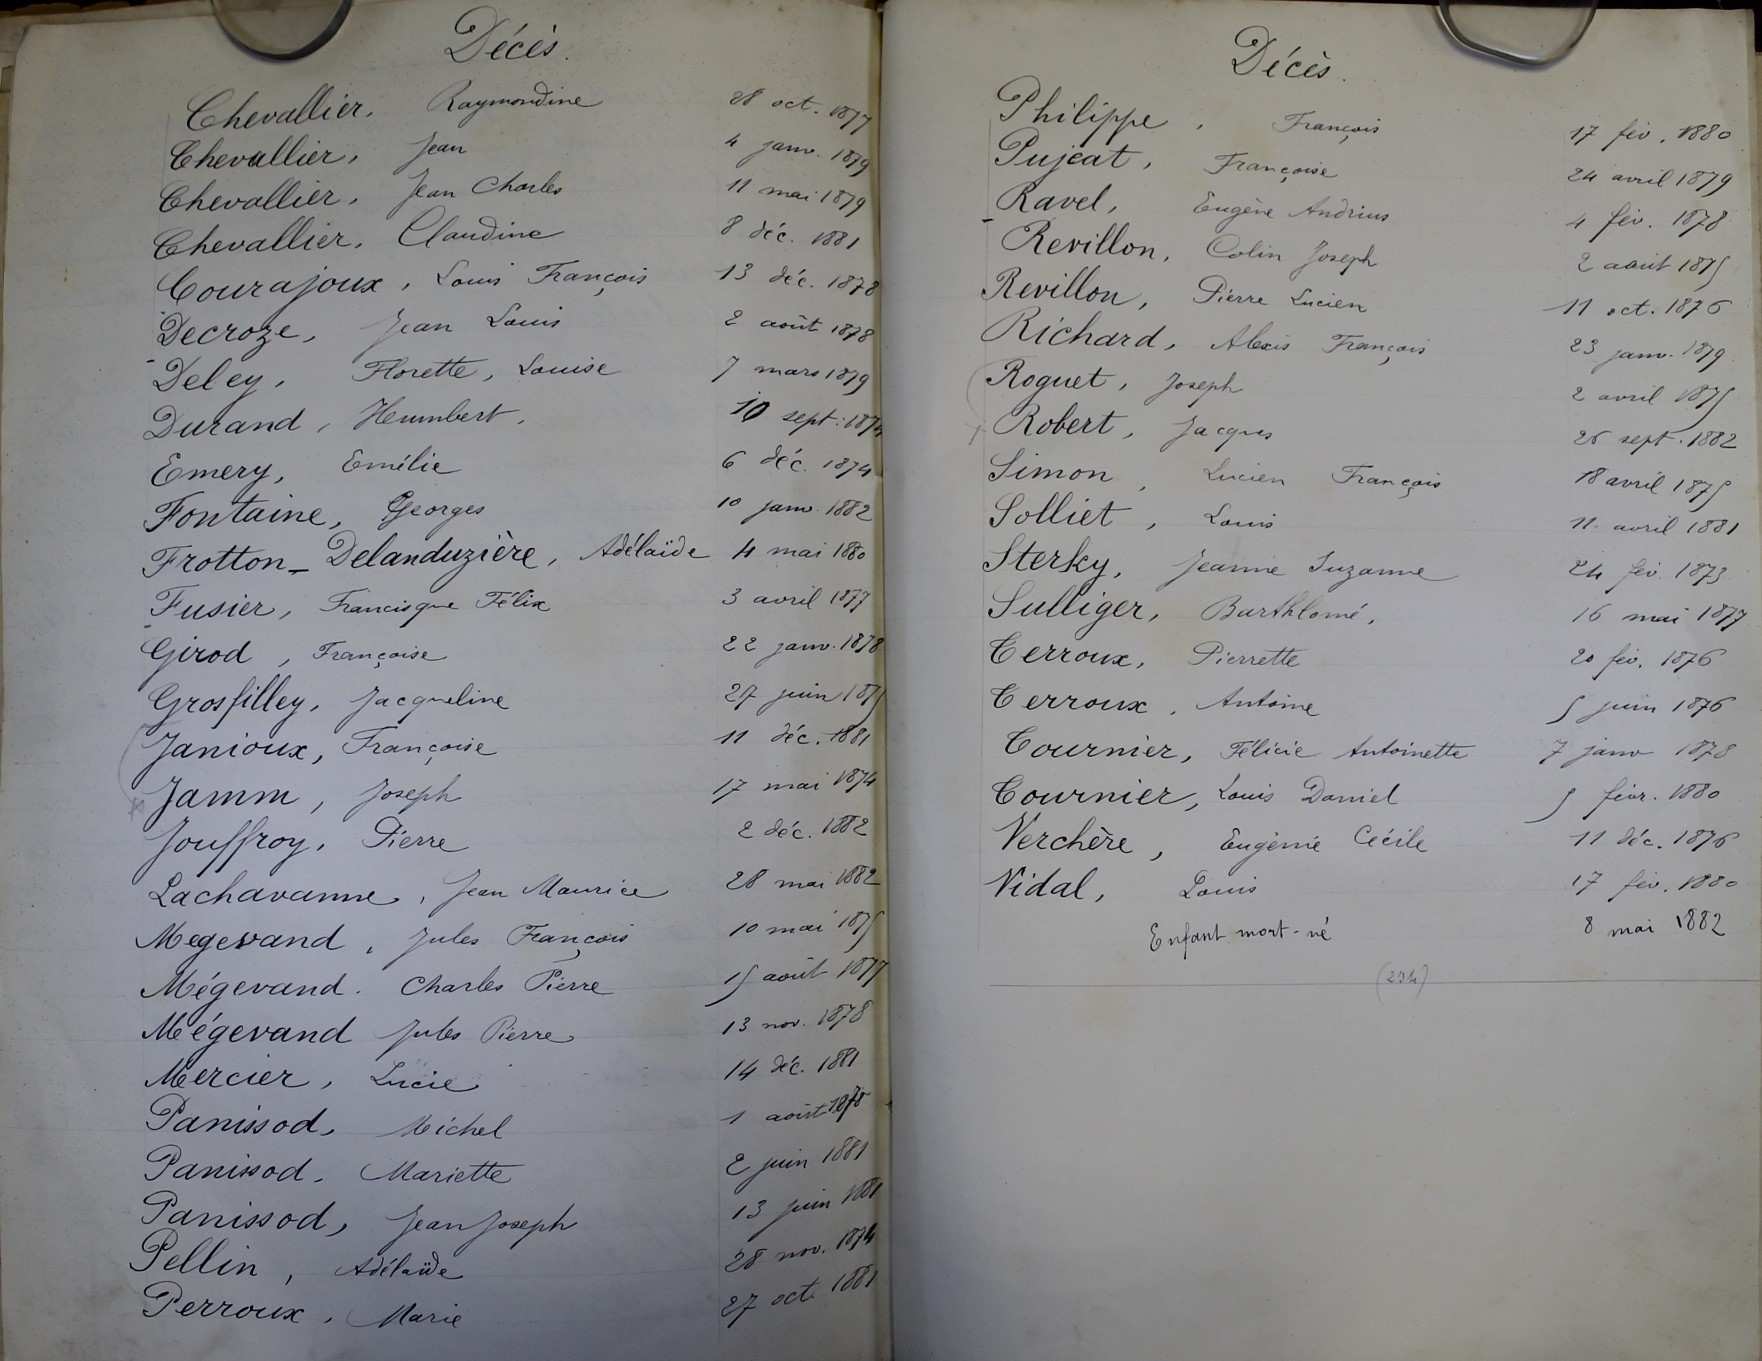 Décès.
Chevallier, Raymondine 28 oct. 1877
Chevallier, Jean 4 janv. 1879
Chevallier, Jean Charles 11 mai 1879
Chevallier, Claudine 8 déc. 1881
Courajoux, Louis François 13 déc. 1878
Decroze, Jean Louis 2 août 1878
Deley, Florette, Louise 7 mars 1879
Durand, Humbert, 10 sept. 1874
Emery, Emélie 6 déc. 1874
Fontaine, Georges 10 janv. 1882
Frotton-Delanduzière, Adélaïde 4 mai 1880
Fusier, Francisque Félix 3 avril 1877
Girod, Françoise 22 janv. 1878
Grosfilley, Jacqueline 27 juin 1875
Janioux, Françoise 11 déc. 1881
Jamm, Joseph 17 mai 1874
Jouffroy, Pierre 2 déc. 1882
Lachavanne, Jean Maurice 28 mai 1882
Megevand, Jules François 10 mai 1875
Mégevand. Charles Pierre 15 août 1877
Mégevand Jules Pierre 13 nov. 1878
Mercier, Lucie 14 déc. 1881
Panissod, Michel 1 août
Panissod, Mariette 2 juin 1881
Panissod, Jean Joseph 13 juin 1881
Pellin, Adélaïde 28 nov. 1874
Perroux, Marie 27 oct. 1881
Décès.
Philippe, François 17 fév. 1880
Pujeat, Françoise 24 avril 1879
Ravel, Eugène Andrius 4 fév. 1878
Revillon, Colin Joseph 2 août 1875
Revillon, Pierre Lucien 11 oct. 1876
Richard, Alexis François 23 janv. 1879
Roguet, Joseph 2 avril 1875
Robert, Jacques 26 sept. 1882
Simon, Lucien François 18 avril 1875
Solliet, Louis 11 avril 1881
Sterky, Jeanne Suzanne 24 fév. 1873
Sulliger, Barthlomé, 16 mai 1877
Terroux, Pierrette 20 fév. 1876
Terroux, Antoine 5 juin 1876
Tournier, Félicie Antoinette 7 janv 1878
Tournier, Louis Daniel 5 févr. 1880
Verchère, Eugénie Cécile 11 déc. 1876
Vidal, Louis 17 fév. 1880
Enfant mort-né 8 mai 1882
(234)